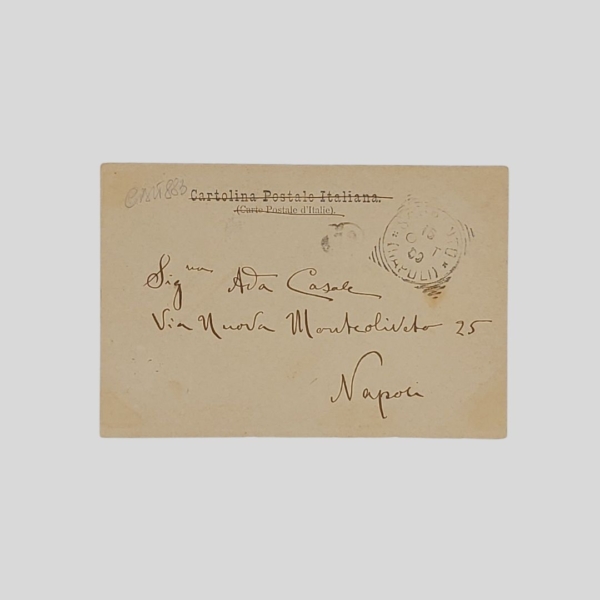 Cartolina Postale Italiana.
(Carte Postale d'Italie).
(NAPOLI)
Sig.na Ada Casale
Via Nuova Monteoliveto 25
Napoli